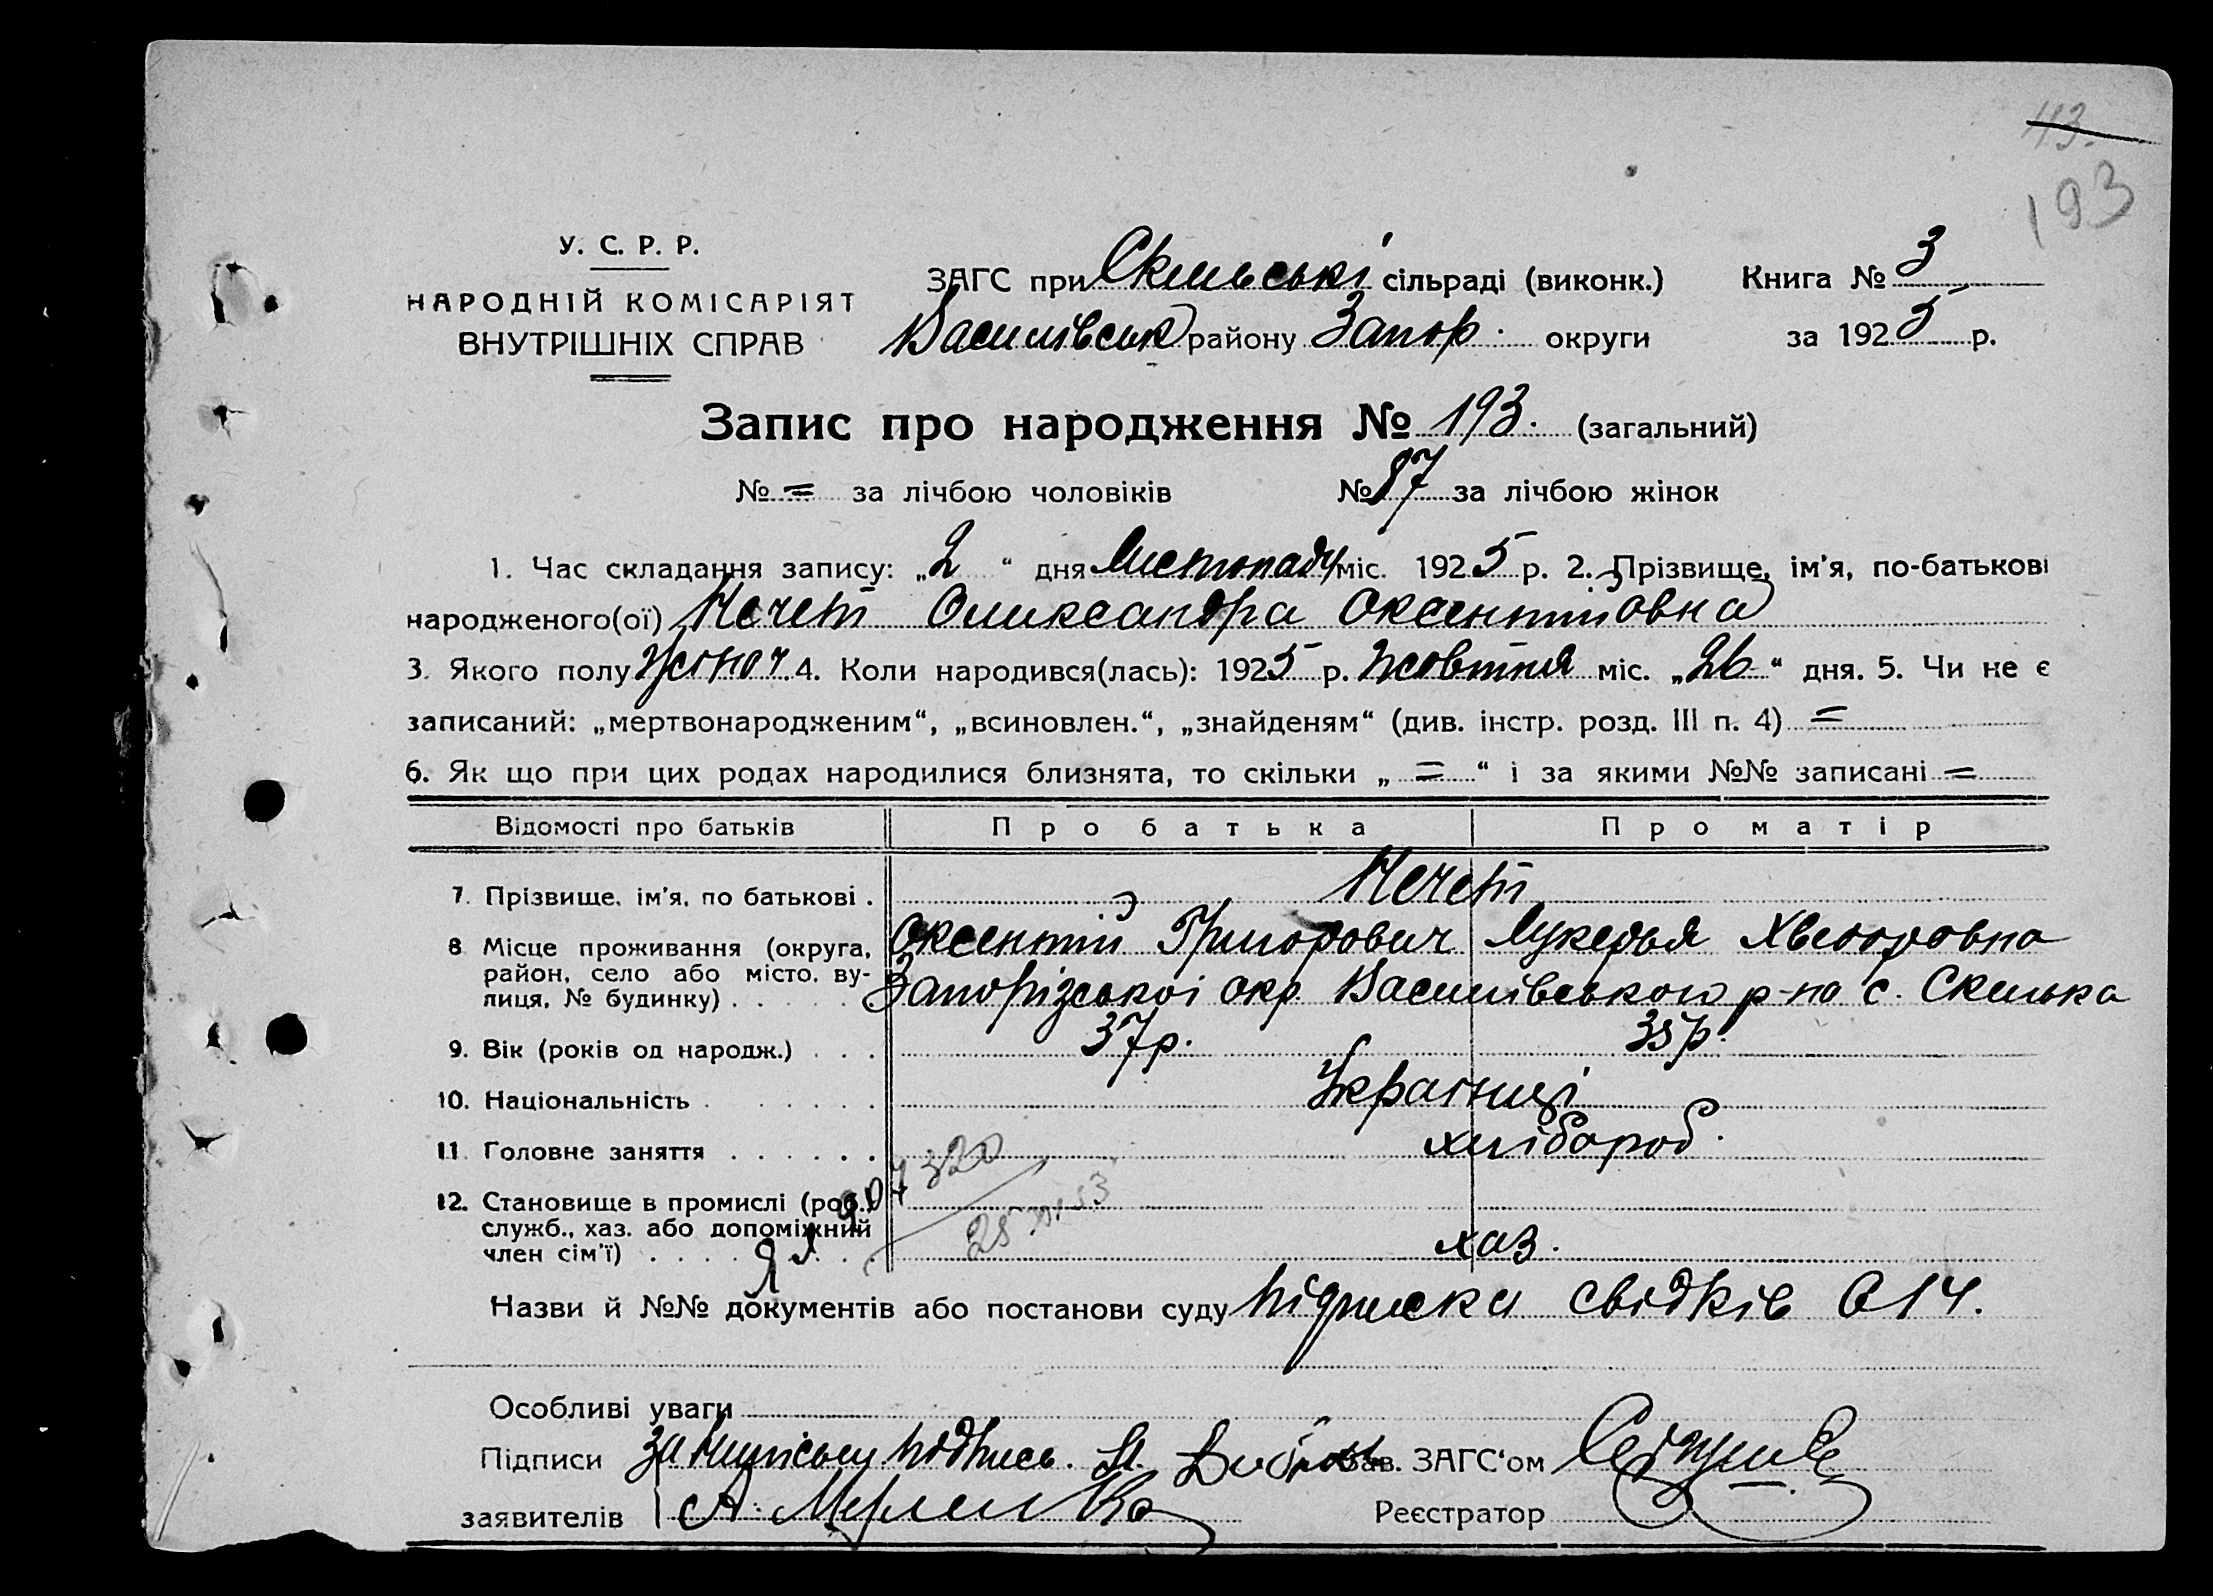 113.
193
У. С. Р. Р.
НАРОДНІЙ КОМІСАРІЯТ
ВНУТРІШНІХ СПРАВ
ЗАГС при Скельські сільраді (виконк.) Книга № 3
Василівськ району Запор. округи за 1925 р.
Запис про народження № 193. (загальний)
№ = за лічбою чоловіків № 87 за лічбою жінок
1. Час складання запису: „2“ дня Листопаду міс. 1925 р. 2. Прізвище, ім'я, по-батькові
народженого(ої) Нечет Олександра Оксентіївна
3. Якого полу жіноч. 4. Коли народився(лась): 1925 р. Жовтня міс. „26“ дня. 5. Чи не є
записаний: „мертвонародженим“, „всиновлен.“, „знайденям“ (див. інстр. розд. III п. 4) =
6. Як що при цих родах народилися близнята, то скільки „ = “ і за якими №№ записані =
Відомості про батьків Про батька Про матір
7. Прізвище, ім'я, по батькові . Нечет
Оксентій Григорович Лукерья Хведоровна
8 Місце проживання (округа, район, село або місто, вулиця, № будинку) Запорізської окр. Василівського р-на с. Скелька
9. Вік (років од народж.) . . . 37р. 35р.
10. Національність Українці
11. Головне заняття хлібороб.
12. Становище в промислі (роб., служб., хаз. або допоміжний член сім'ї) хаз.
320
Назви й №№ документів або постанови суду підписка свідків 614.
Особливі уваги
Підписи За подпись. Зав. ЗАГС'ом
заявителів А. Реєстратор